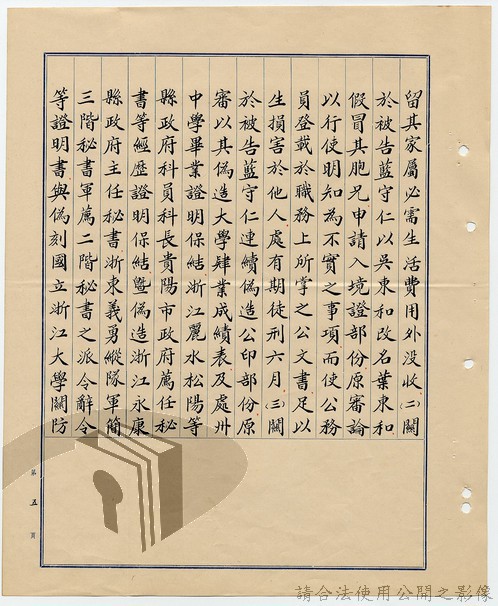 留其家屬必需生活費用外沒收㈡關
於被告藍守仁以吳東和改名葉東和
假冒其胞兄申請入境證部份原審論
以行使明知為不實之事項而使公務
員登載於職務上所掌之公文書足以
生損害於他人處有期徒刑六月㈢關
於被告藍守仁連續偽造公印部份原
審以其偽造大學肄業成績表及處州
中學畢業證明保結浙江麗水松陽等
縣政府科員科長貴陽市政府薦任秘
書等經歷證明保結暨偽造浙江永康
縣政府主任秘書浙東義勇縱隊軍簡
三階秘書軍薦二階秘書之派令辭令
等證明書與偽刻國立浙江大學關防
第五頁
請合法使用公開之影像